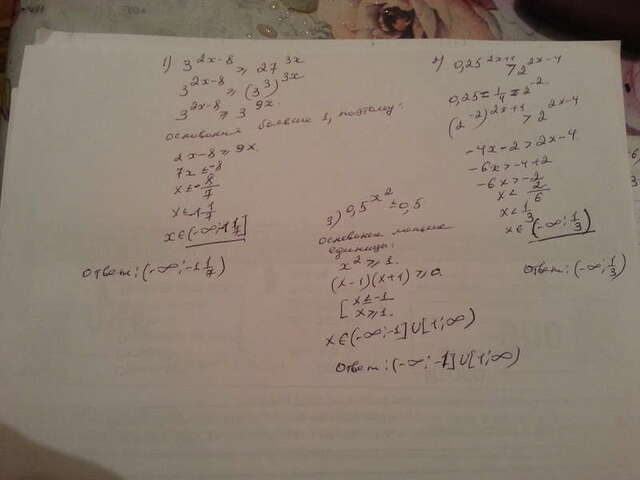 1) 3^(2x-8) ≥ 27^(3x)
3^(2x-8) ≥ (3^3)^(3x)
3^(2x-8) ≥ 3^(9x).
основания больше 1, поэтому:
2x-8 ≥ 9x.
7x ≤ -8
x ≤ -8/7
x ≤ -1 1/7
x ∈ (-∞; -1 1/7]
Ответ: (-∞; -1 1/7)
2) 0,25^(2x+1) > 2^(2x-4)
0,25 = 1/4 = 2^(-2)
(2^(-2))^(2x+1) > 2^(2x-4)
-4x-2 > 2x-4
-6x > -4+2
-6x > -2
x < 2/6
x < 1/3
x ∈ (-∞; 1/3)
Ответ: (-∞; 1/3)
3) 0,5^(x^2) ≤ 0,5
основание меньше
единицы:
x^2 ≥ 1.
(x-1)(x+1) ≥ 0
[ x ≤ -1
x ≥ 1.
x ∈ (-∞; -1] U [1; ∞)
Ответ: (-∞; -1] U [1; ∞)